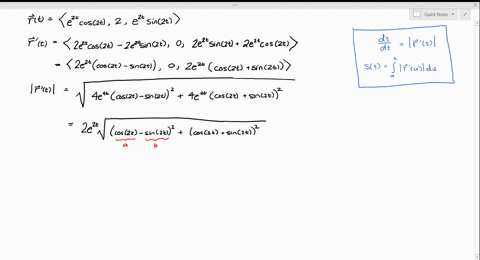 r⃗(t) = ⟨e^{2t}cos(2t), 2, e^{2t}sin(2t)⟩
r⃗'(t) = ⟨2e^{2t}cos(2t) - 2e^{2t}sin(2t), 0, 2e^{2t}sin(2t) + 2e^{2t}cos(2t)⟩
= ⟨2e^{2t}(cos(2t) - sin(2t)), 0, 2e^{2t}(cos(2t) + sin(2t))⟩
|r⃗'(t)| = √(4e^{4t}(cos(2t) - sin(2t))² + 4e^{4t}(cos(2t) + sin(2t))²)
= 2e^{2t}√((cos(2t) - sin(2t))² + (cos(2t) + sin(2t))²)
a b
Quick Notes
ds/dt = |r⃗'(t)|
S(t) = ∫|r⃗'(u)|du